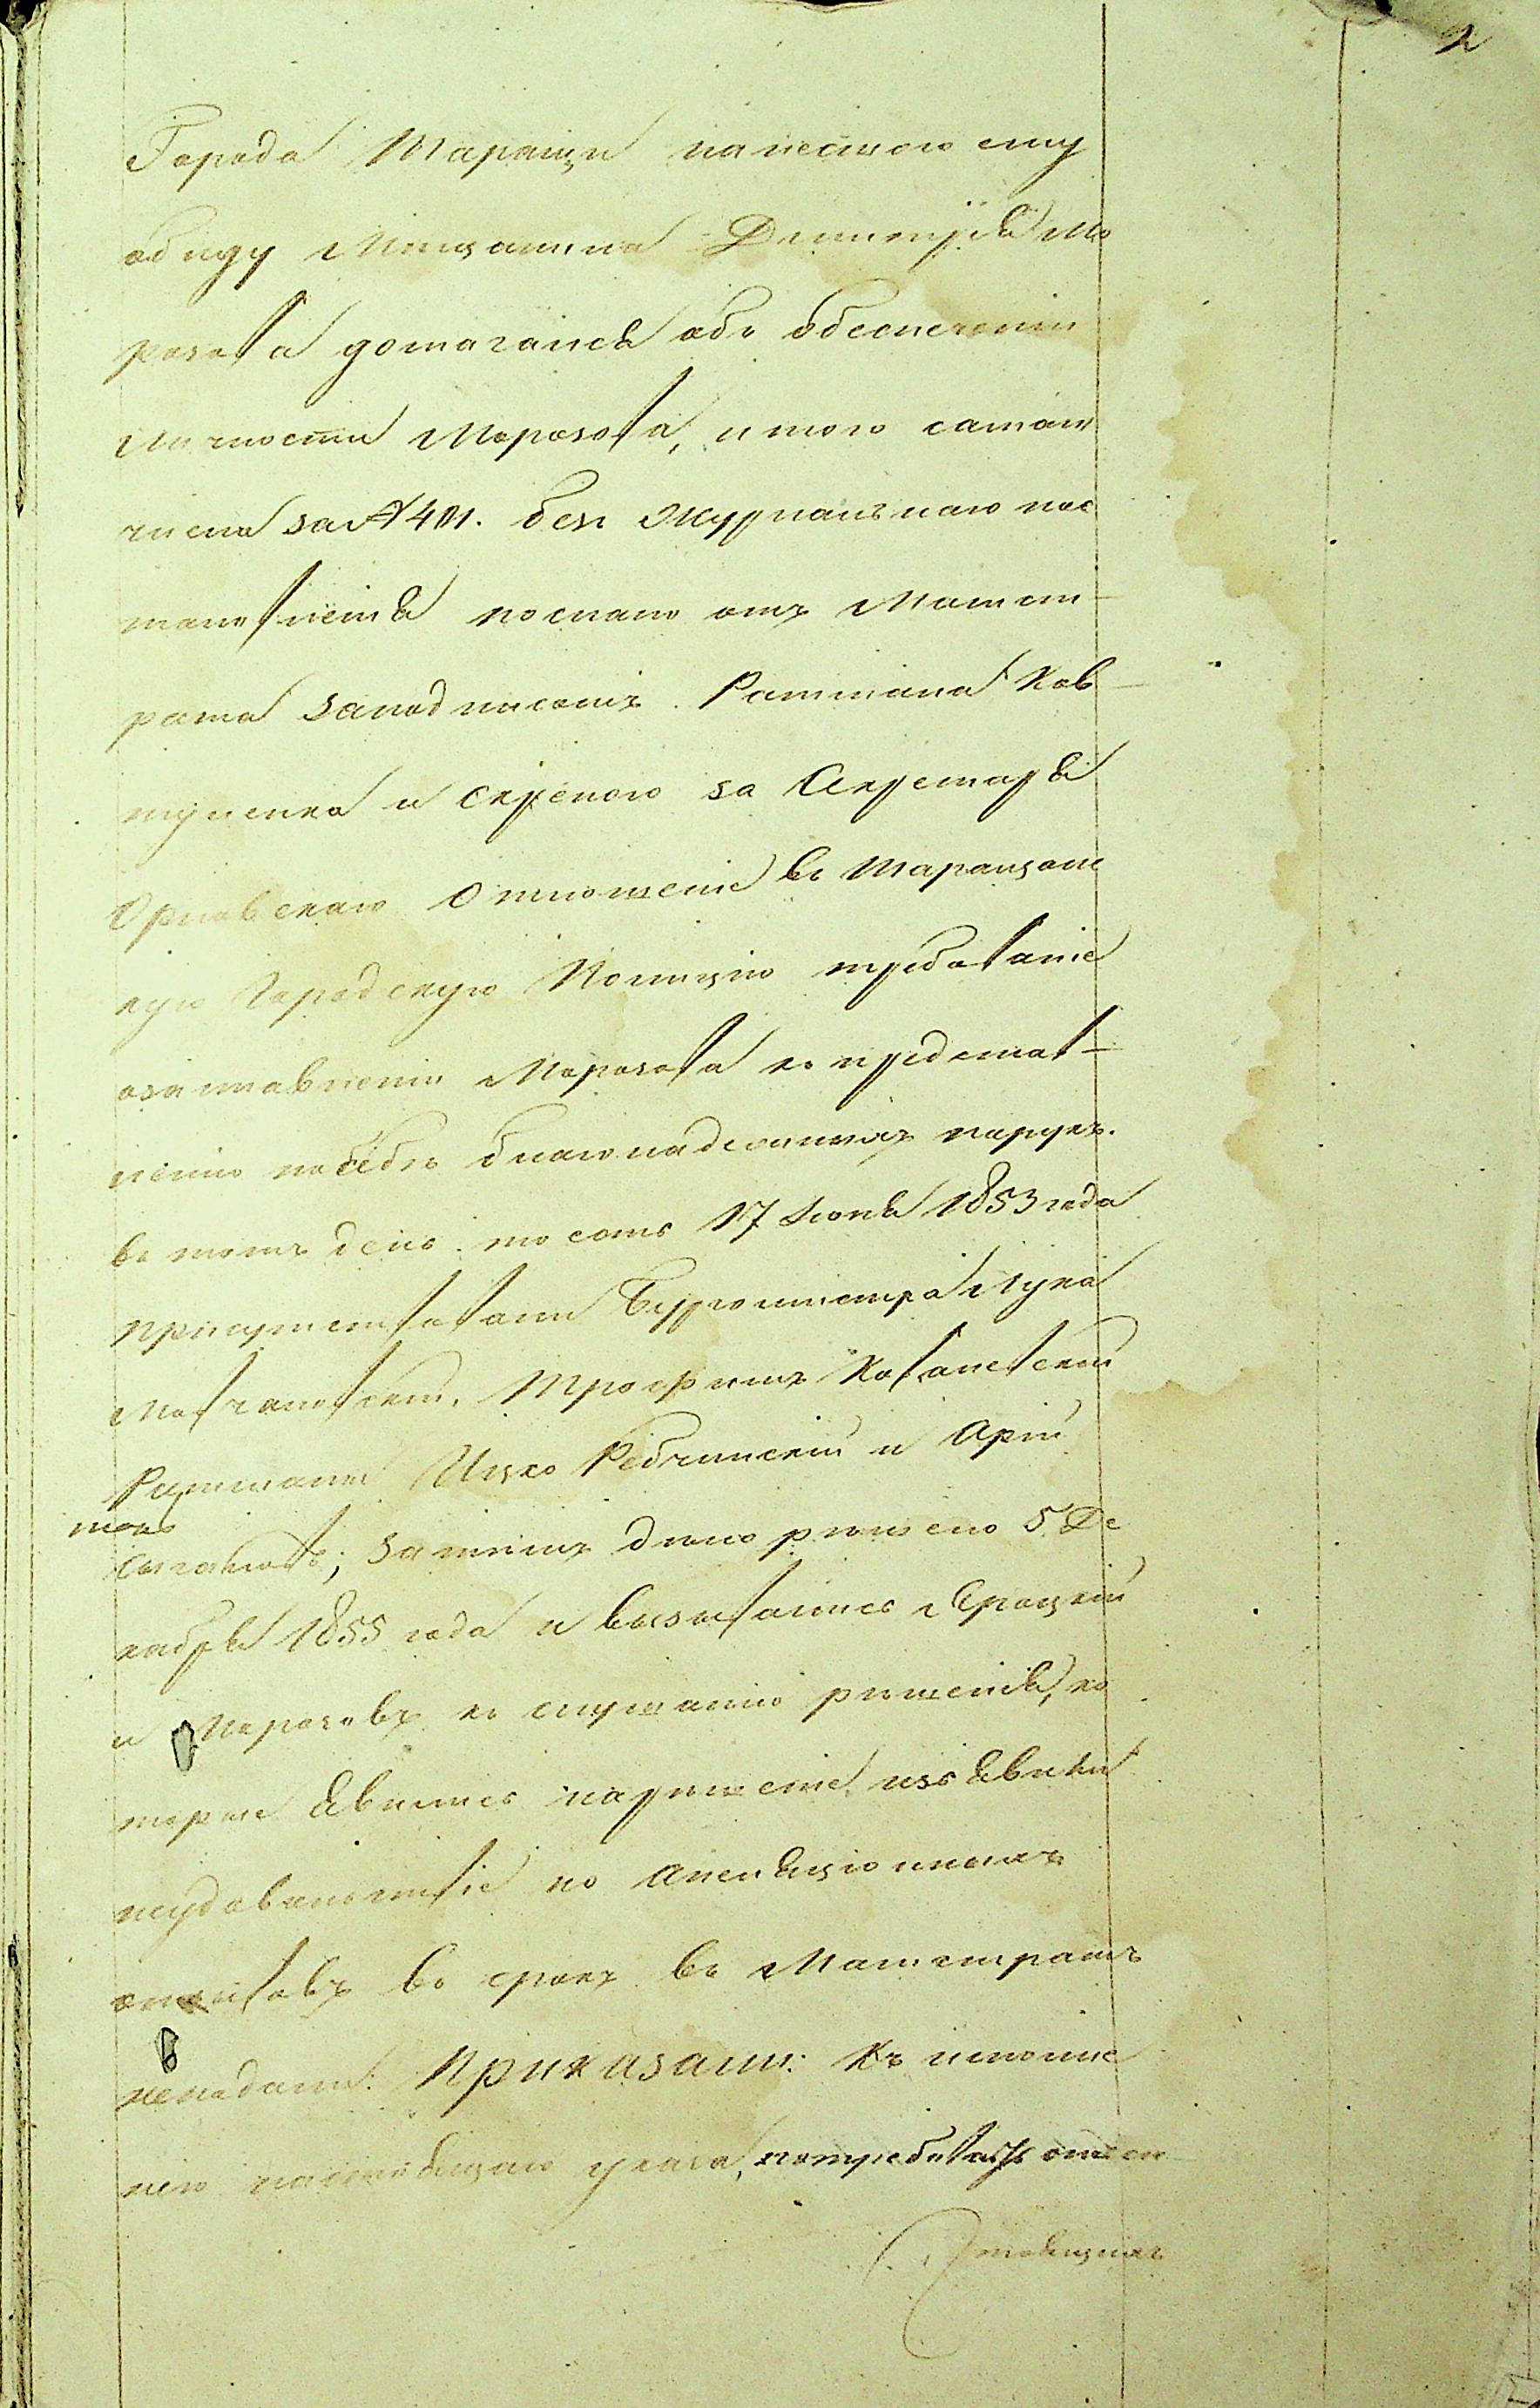 2
Города Таращи нанесеную ему
обиду Мещанина Дементія Мо
розова домагался объ обеспеченіи
личности Морозова, и того самаго
числа за №401. без Журнальнаго пос
тановленія послано отъ Магист-
рата за подписомъ Ратмана Ков-
туненка и скрепою за Секретаря
Орловскаго Отношеніе въ Таращанс
кую Городскую Полицію требованіе
о заставленіи Морозова къ представ-
ленію по себѣ благонадежныхъ порукъ.
въ томъ день то есть 17 Іюня 1853 года
присутствовали Бургомистра Лука
Мовчановскій, Трофимъ Ковалевскій
Ратманы Ицко Рабчинскій и Арій
Сыгаловъ; за тѣмъ дело решено 5 Де
кабря 1855 года и вызывались Троцкій
и Морозовъ къ слушанію решенія, ко
торые явились на решеніе изъявили
неудовольствіе но апеляціонныхъ
отзывовъ въ срокъ въ Магистратъ
неподали. Приказали: Къ исполне
нію настоящаго указа, потребовать от со
стоящихъ